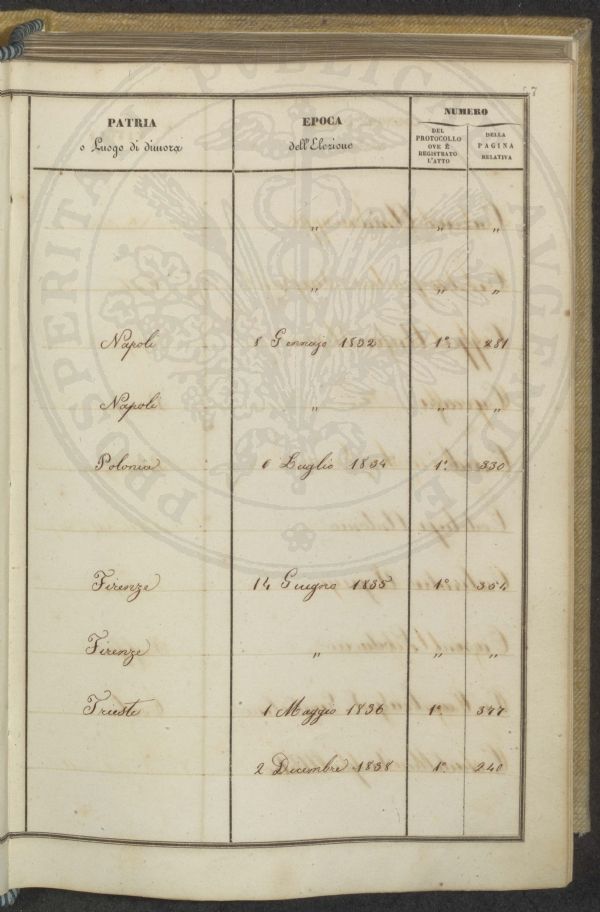 7
PATRIA
o Luogo di dimora
EPOCA
dell'Elezione
NUMERO
DEL
PROTOCOLLO
OVE È
REGISTRATO
L'ATTO
DELLA
PAGINA
RELATIVA
„ „ „
„ „ „
Napoli 8 Gennajo 1832 1º 281
Napoli „ „ „
Polonia 6 Luglio 1834 1º 330
Firenze 14 Giugno 1835 1º 354
Firenze „ „ „
Trieste 1 Maggio 1836 1º 377
2 Dicembre 1838 1º 240
PROSPERITATI PUBLICAE AUGENDAE